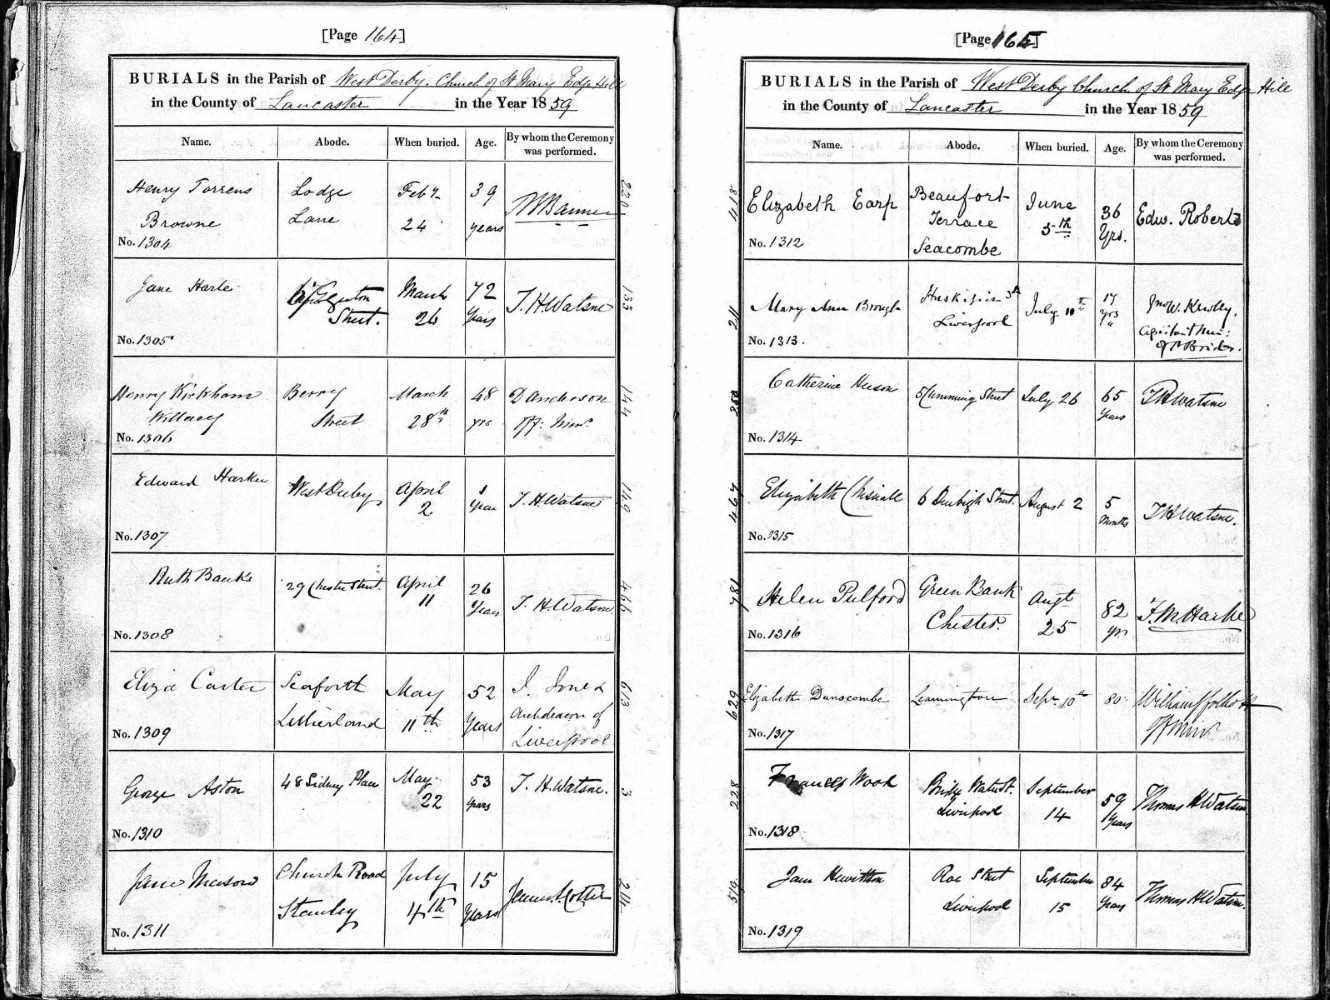 [Page 164]
BURIALS in the Parish of West Derby. Church of St Mary Edge Hill
in the County of Lancaster in the Year 1859
Name. Abode. When buried. Age. By whom the Ceremony was performed.
Henry Torrens Lodge Feby 39
Browne Lane 24 years
No. 1304 220
Jane Harle March 72 T. H. Watson
Street. 26 Years
No. 1305 133
Henry Kirkham Berry March 48 D Anderson
Street 28th yrs Off: Minr
No. 1306 144
Edward Harker West Derby April 1 T. H. Watson
2 Year
No. 1307 149
Ruth Banks 29 Chester Street. April 26 T. H. Watson
11 Years
No. 1308 466
Eliza Carter Seaforth May 52 J. Jones
Litherland 11th Years Archdeacon of
Liverpool
No. 1309 613
George Aston 48 Sidney Place May 53 T. H. Watson.
22 years
No. 1310 3
Jane Mason Church Road July 15
Stanley 4th Years
No. 1311
[Page 165]
BURIALS in the Parish of West Derby Church of St Mary Edge Hill
in the County of Lancaster in the Year 1859
Name. Abode. When buried. Age. By whom the Ceremony was performed.
418 Elizabeth Earp Beaufort June 36 Edw. Roberts
Terrace 5th Yrs.
No. 1312 Seacombe
211 Mary Ann Brough July 17
Liverpool yrs
No. 1313.
250 Catherine 5 Cumming Street July 26 65 T H Watson
Years
No. 1314
467 Elizabeth Chisnall 6 Denbigh Street. August 2 5 T H Watson.
Months
No. 1315
781 Helen Pulford Green Bank Augt 82
Chester. 25 yrs
No. 1316
629 Elizabeth Dunscombe Leamington Sepr 10th 80
Off Minr
No. 1317
228 Frances Wook Liverpool September 59 Thomas H Watson
14 Years
No. 1318
519 Jane Hewittson Roe Street September 84 Thomas H Watson.
Liverpool 15 Years
No. 1319